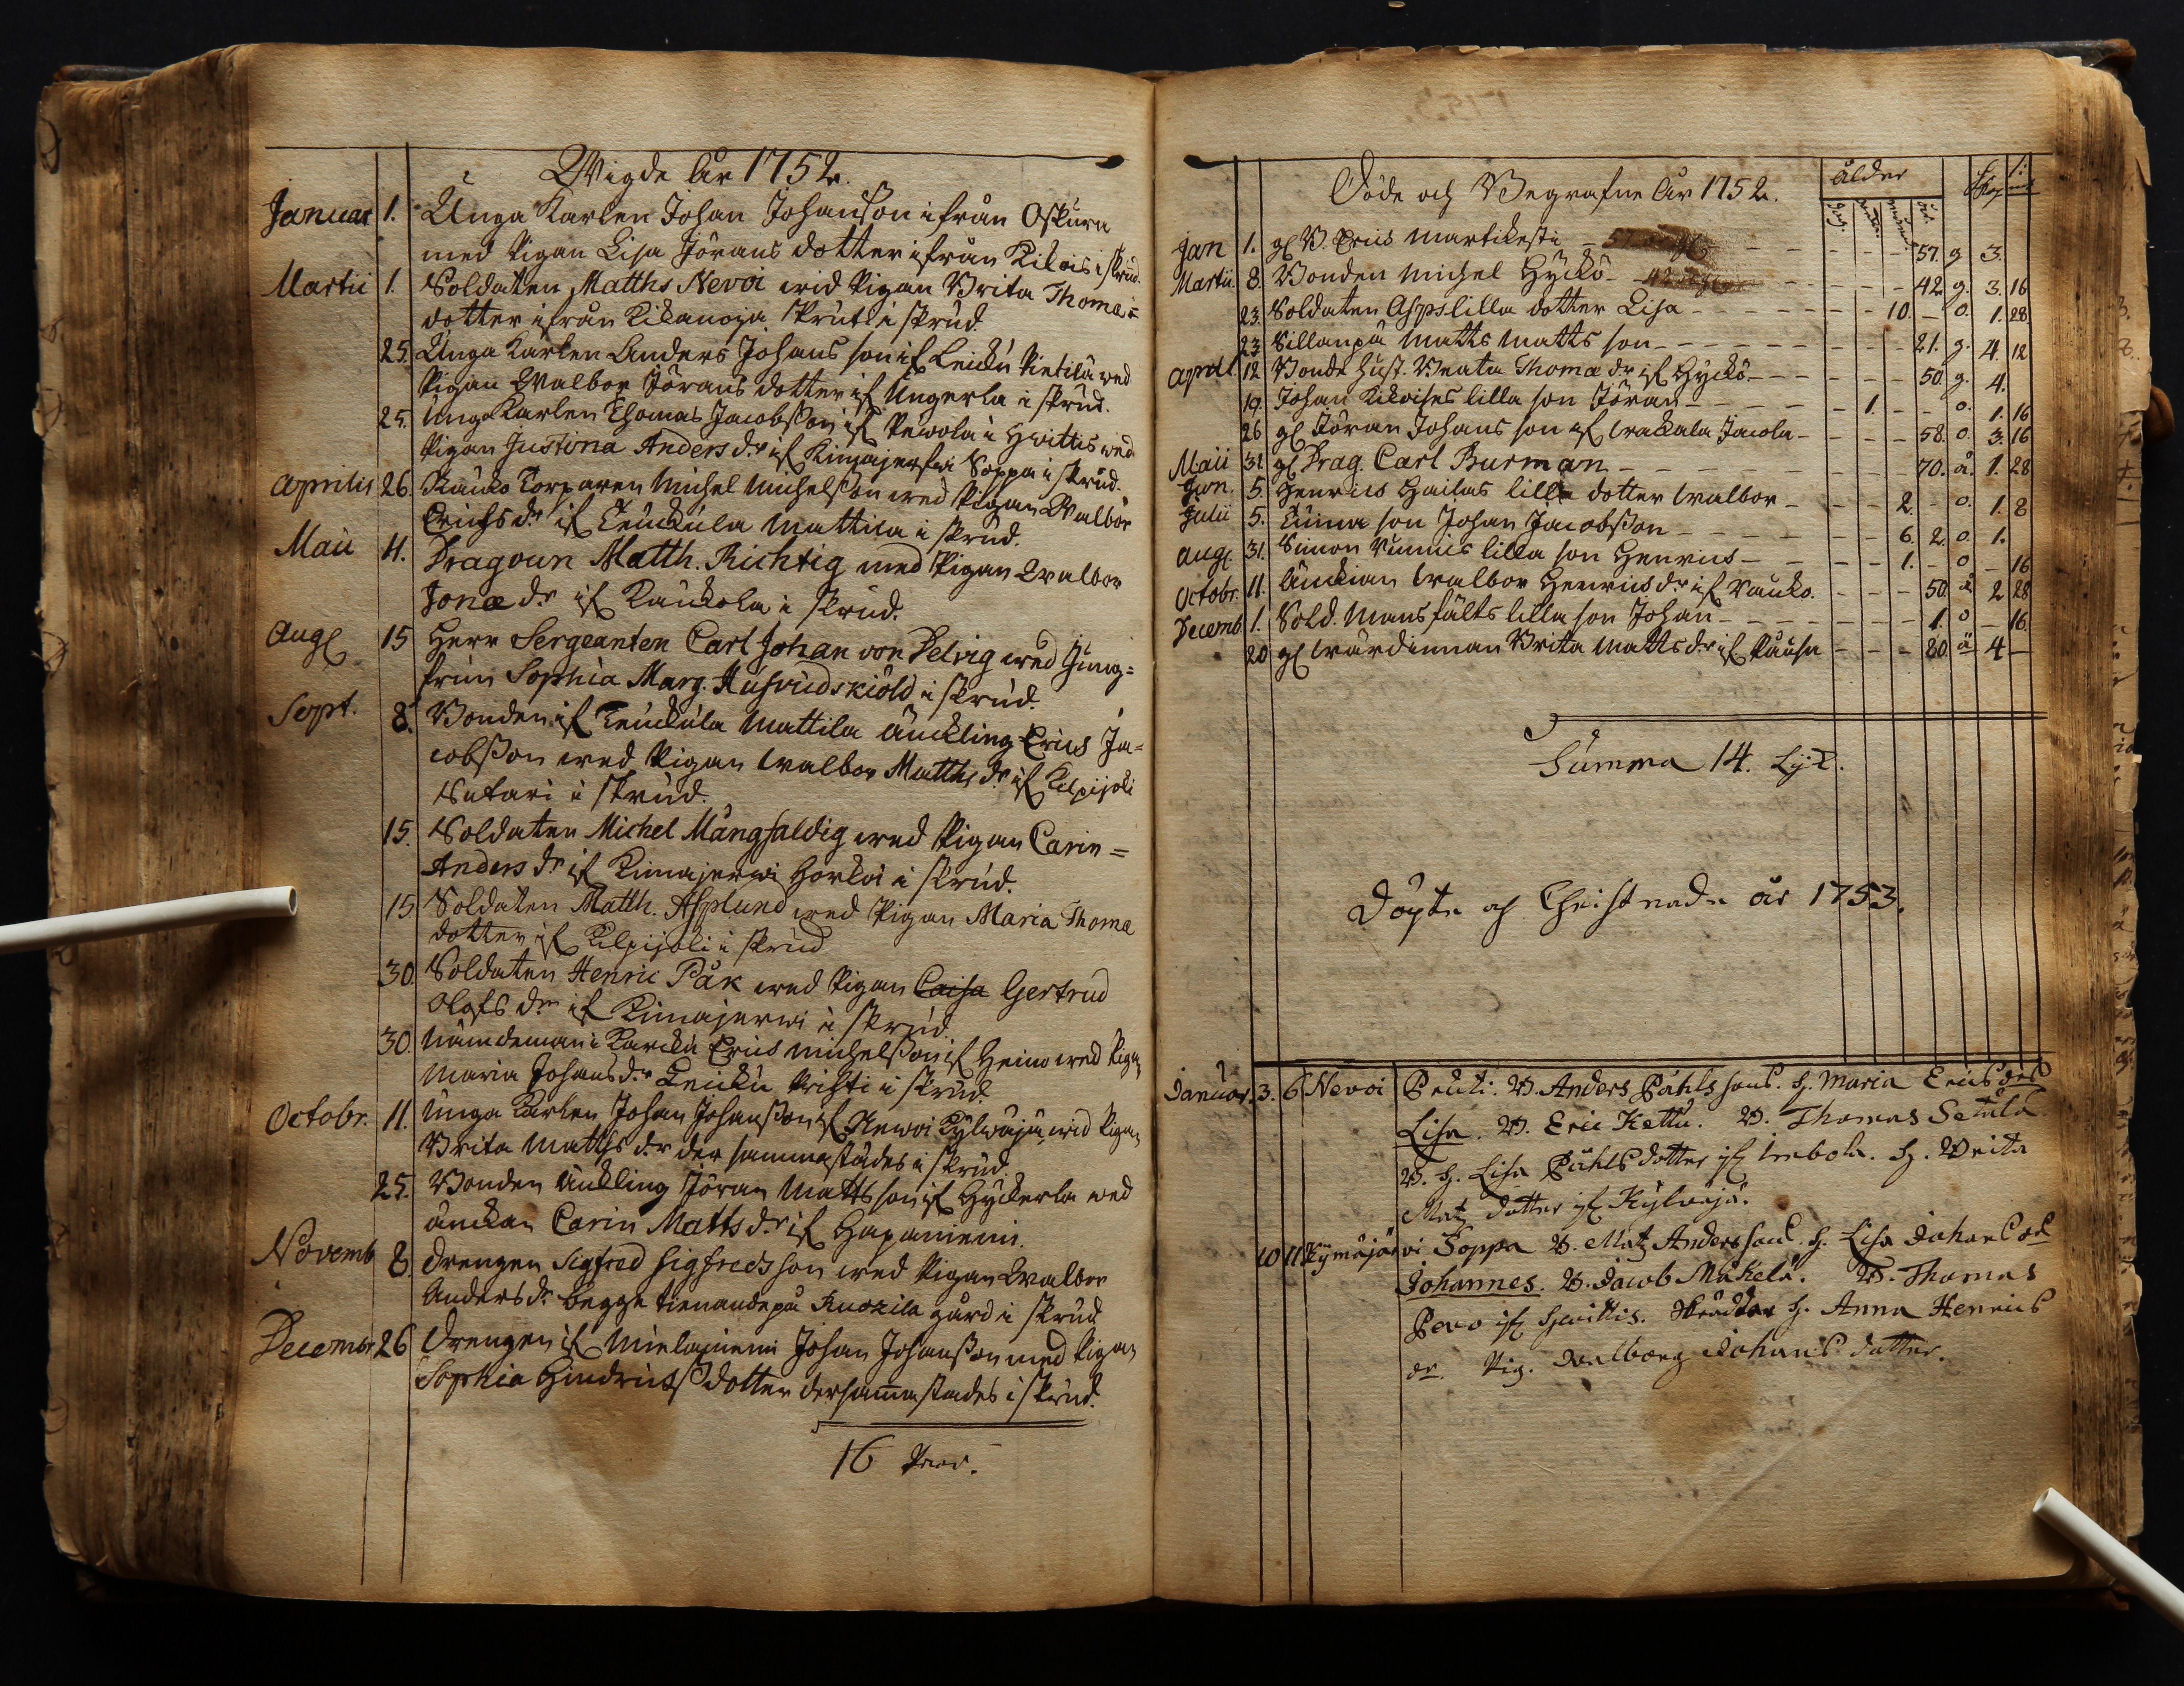 Wigde åhr 1752.
Januar 1. Unga Karlen Johan Johansson ifrån Oskura
med Pigan Lisa Jörans dotter ifrån Kikois i skrud.
Martii 1. Soldaten Matths Nevoi wid Pigan Brita Thomæ=
dotter ifrån i skrud.
25. Unga Karlen Anders Johans son if Leicku Pietilä wed
Pigan Walbor Jörans dotter if Ungerla i skrud.
25. Unga Karlen Thomas Jacobsson if i Hvittis wed
Pigan Justina Anders dr if Kimajerfwi Soppa i skrud.
Aprilis 26. Rauko Torparen Michel Michelsson wed Pigan Walbor
Erichs dr if Teuckula Mattila i skrud.
Maii 4. Dragoun Matth. Richtig med Pigan Walbor
Jonæ dr if Kaukola i skrud.
Aug 15 Herr Sergeanten Carl Johan von Delvig wed Jung=
frun Sophia Marg. Hufvudskiöld i skrud.
Sept. 8. Bonden if Teuckula Mattila änckling Erics Ja=
cobsson wed Pigan Walbor Matths dr if Kilpijoki
Sutari i skrud.
15. Soldaten Michel Mångfaldig wed Pigan Carin=
Anders dr if Kimajerwi Horkoi i skrud.
15 Soldaten Matth. Asplund wed Pigan Maria Thomæ
dotter if Kilpijoki i skrud
30. Soldaten Henric Påk wed Pigan Caisa Gertrud
Olofs dr if Kimajerwi i skrud.
30. Nämdeman i Karcku Erics Michelsson if Heino wed Pigan
Maria Johans dr Leicku Prihti i skrud.
Octobr. 11. Unga Karlen Johan Johansson if Newoi Kylwäjä, wid Pigan
Brita Matths dr der sammastädes i skrud.
25. Bonden Änckling Jöran Matts son if Hyckerla wed
änckan Carin Matts dr if Hapaniemi.
Novemb 8. Drengen Sigfred Sigfreds son wed Pigan Walbor
Anders dr begge tienande på Kuozila gård i skrud
Decembr 26 Drengen if Mielaniemi Johan Johansson med Pigan
Sophia Hindrics dotter dersammastädes i skrud.
16 Par.
Döde och Begrafne åhr 1752. ålder
Jan 1. gl B. Erics Martikesti 57. g 3.
Martii. 8. Bonden Michel Hyckö 42 g. 3. 16
23. Soldaten Asps lilla dotter Lisa 10. o. 1. 28
23 Sillanpä Matts Matts son 21. g. 4. 12
April 12 Bonde Hust. Beata Thomæ dr if Hyckö 50. g. 4.
19. Johan Kikoises lilla son Jöran 1. o. 1. 16
26 gl Jöran Johans son if Wakala Jacola 58. o. 3. 16
Maii 31 gl Drag. Carl Burman 70. å. 1. 28
Jun. 5. Henrics Hailas lilla dotter Walbor 2. o. 1. 8
Julii 5. son Johan Jacobsson 6. 2. o. 1.
Aug. 31. Simon lilla son Henrics 1. o 16
Octobr. 11. Änckian Walbor Henrics dr if Rauko. 50. å 2 28
Decemb 1. Sold. Mansfälts lilla son Johan 1. o 16.
20 gl Wärdinnan Brita Matts dr if 80 ä 4
Summa 14. Lijk.
Döpte och Christnade år 1753.
Januar. 3. 6 Nevoi Penti. B. Anders Påhls sons. H. Maria Erics drs
Lisa. B. Eric Kettu. B. Thomas Setula
B. H. Lisa Påhls dotter if Imbola. H. Brita
Matz dotter if Kylwäjä.
10 11 Kymäjärvi Soppa B. Matz Anders sons. H. Lisa Johans dr
Johannes. B. Jacob Mäkelä. B. Thomas
Pevo if Hvittis. H. Anna Henrics
dr. Pig. Walborg Johans dotter.